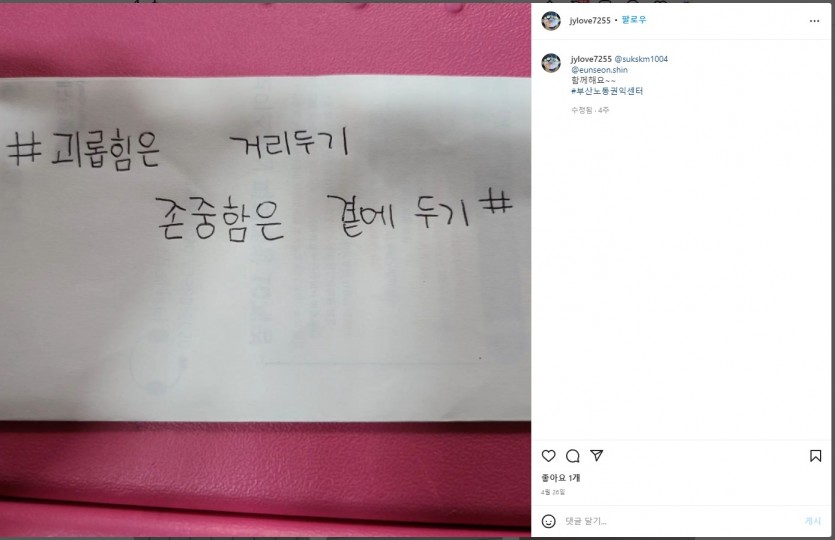 #괴롭힘은 거리두기
존중함은 곁에 두기#
jylove7255 • 팔로우
jylove7255 @sukskm1004
@eunseon.shin
함께해요~~
#부산노동권익센터
수정됨 · 4주
좋아요 1개
4월 26일
댓글 달기...
게시